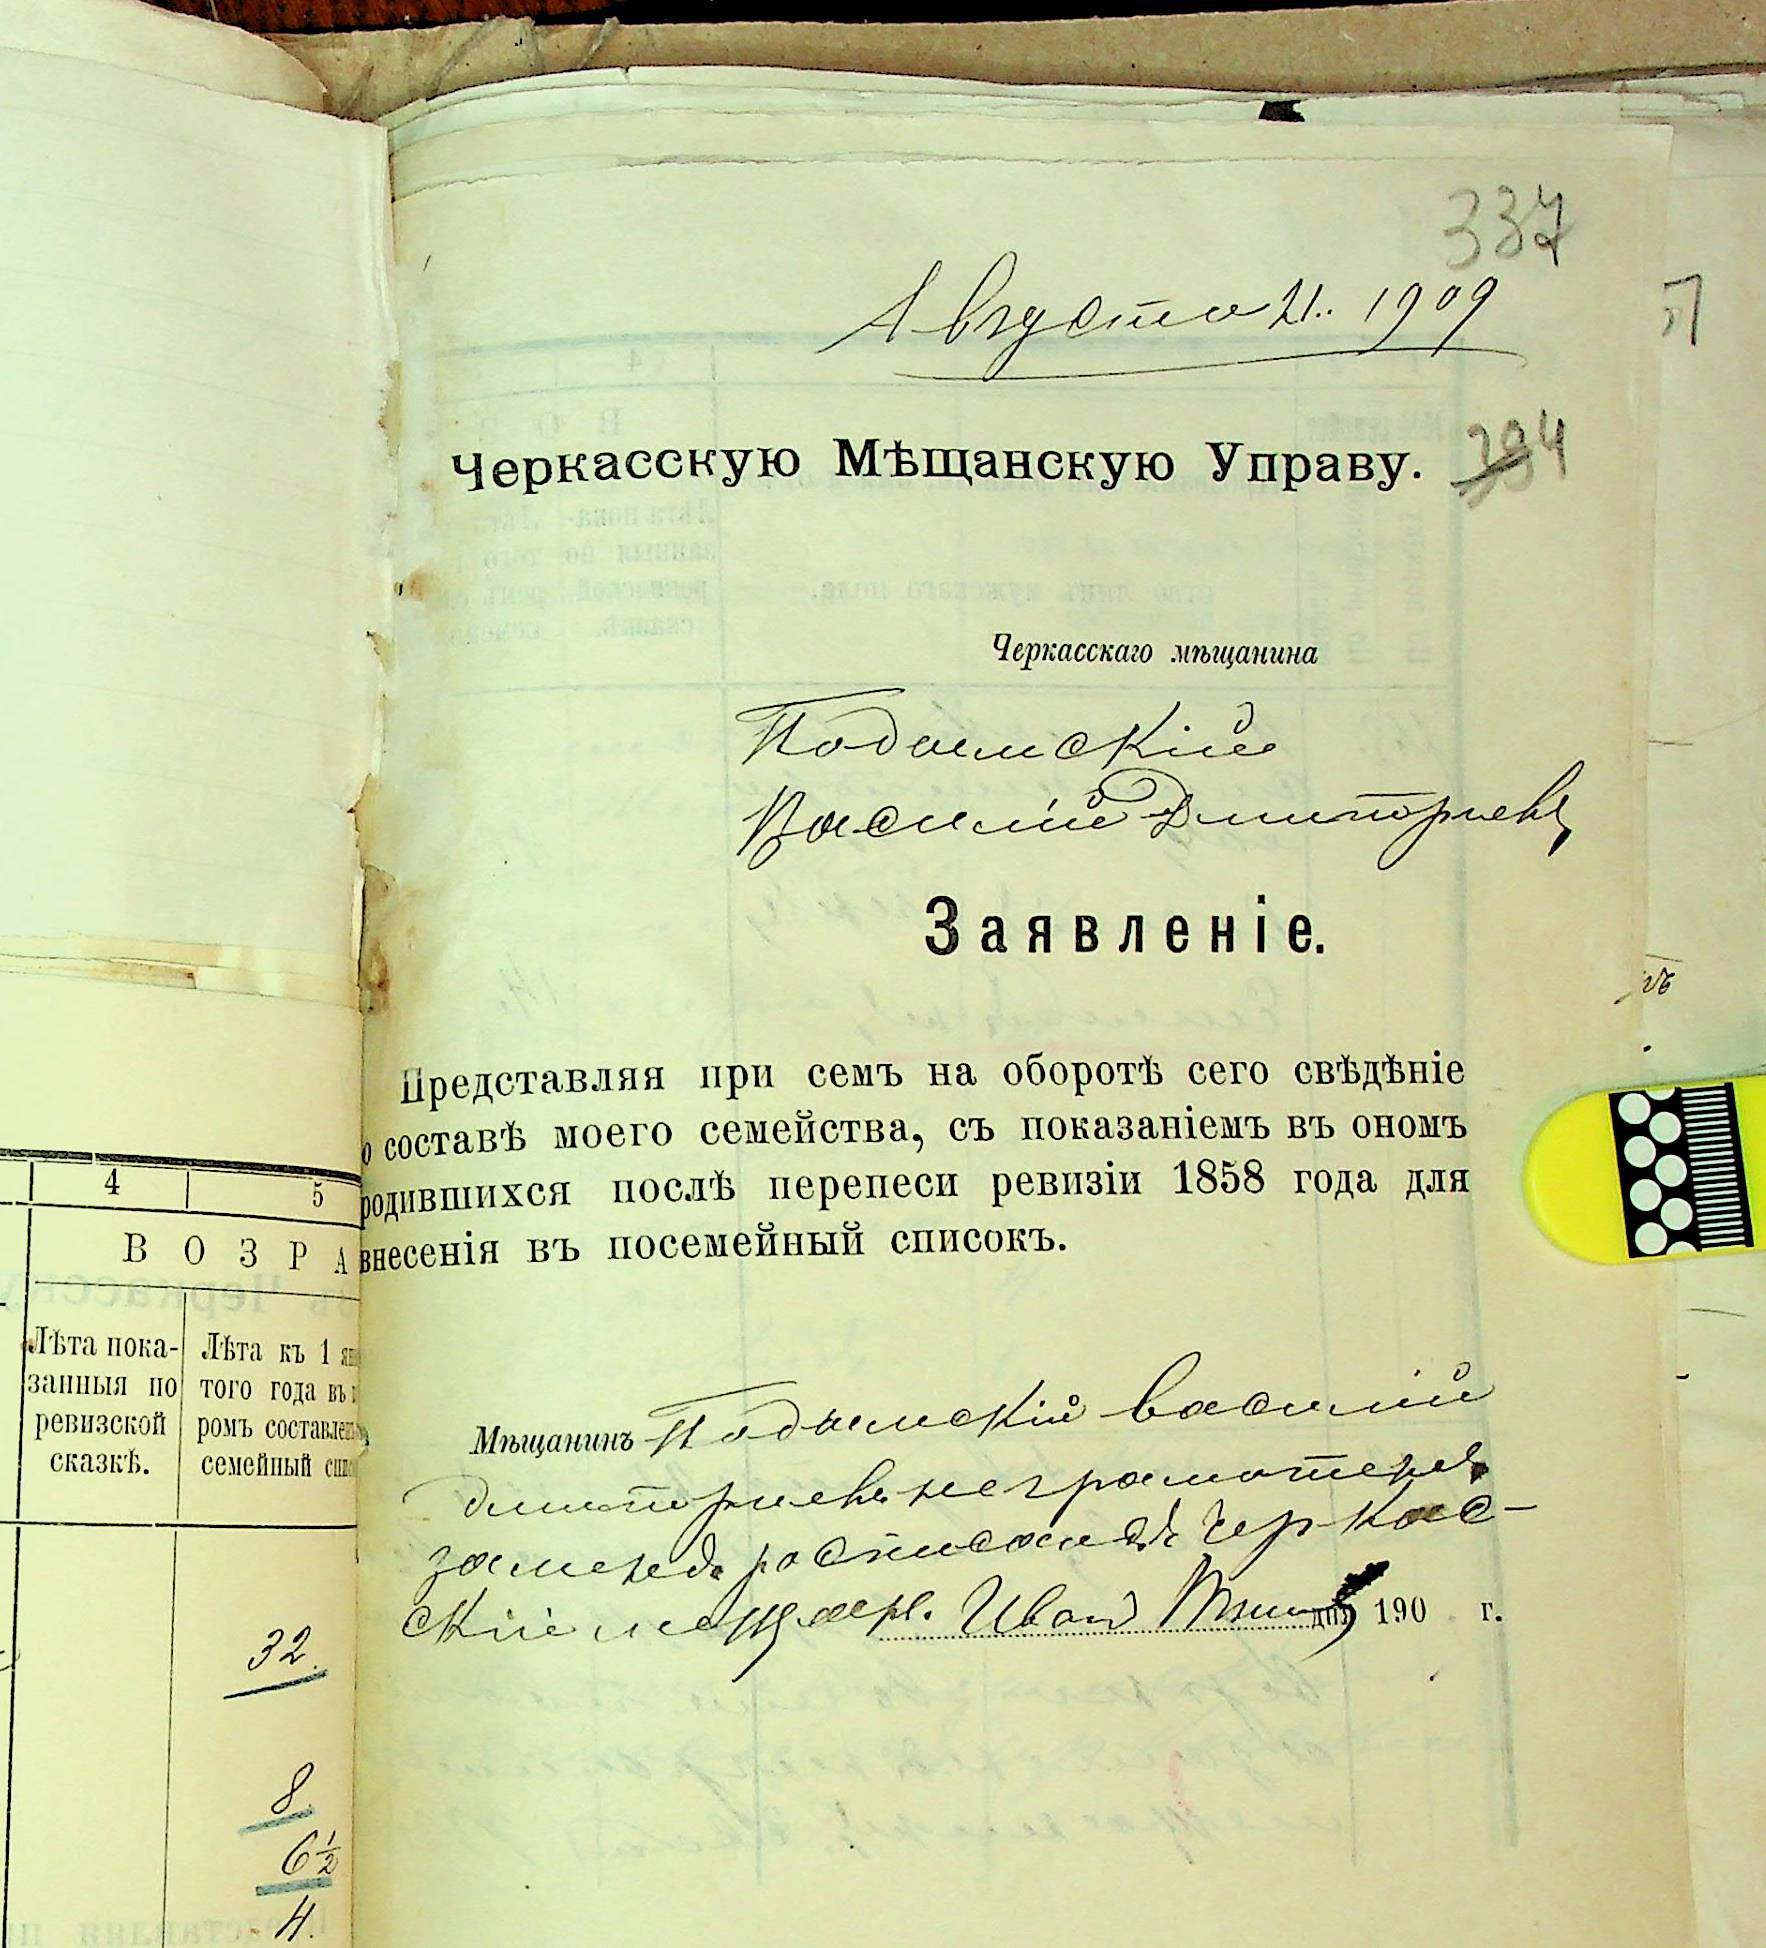 337
Августа 21. 1909
Черкасскую Мѣщанскую Управу.
394
Черкасскаго мѣщанина
Подымскій
Василій Дмитриевъ
Заявленіе.
Представляя при семъ на оборотѣ сего свѣдѣніе
о составѣ моего семейства, съ показаніемъ въ ономъ
родившихся послѣ перепеси ревизіи 1858 года для
внесенія въ посемейный списокъ.
Мѣщанинъ Подымскій Василій
Дмитриевъ неграмотенъ
за менъ росписалъ Черкас-
скій мещаен. Иванъ дня 190 г.
4 5
ВОЗРА
Лѣта пока-
занныя по
ревизской
сказкѣ.
Лѣта къ 1 ян
того года въ
ромъ составле
семейный спи
32.
8.
6½
4.